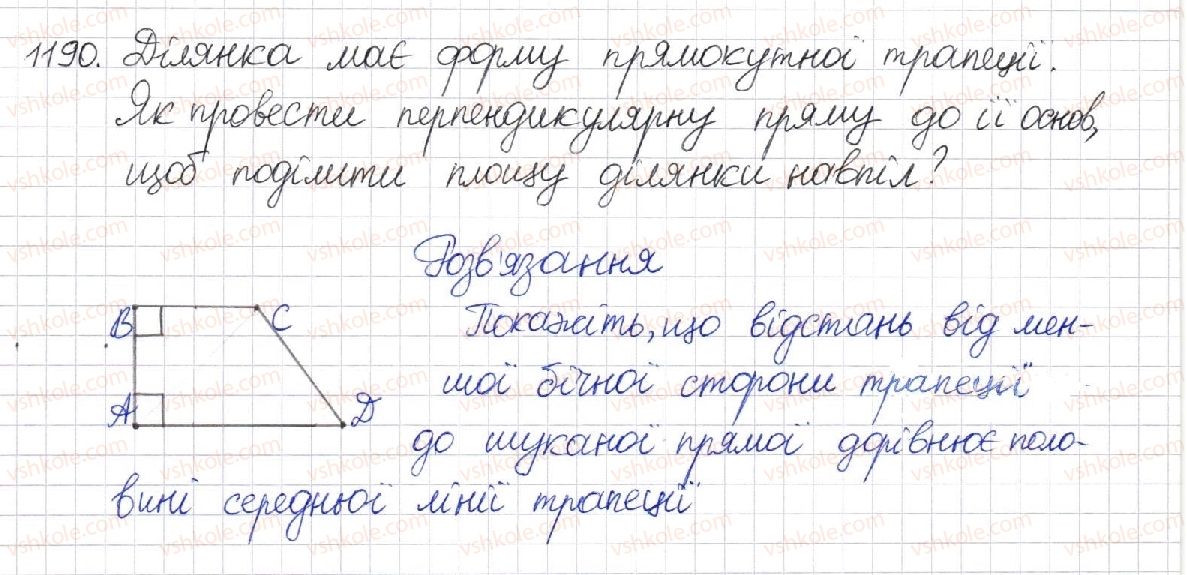 1190. Ділянка має форму прямокутної трапеції.
Як провести перпендикулярну пряму до її основ,
щоб поділити площу ділянки навпіл?
Розв'язання
B C
Покажіть, що відстань від мен-
шої бічної сторони трапеції
A D
до шуканої прямої дорівнює поло-
вині середньої лінії трапеції